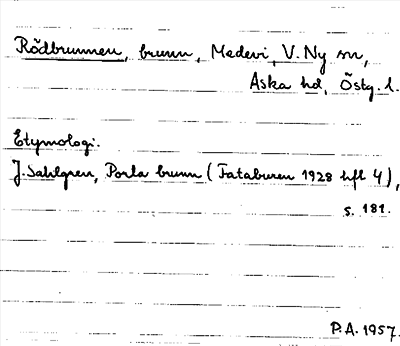 Rödbrunnen, brunn, Medevi, V. Ny sn,
Aska hd, Östg. l.
Etymologi.
J. Sahlgren, Porla brunn (Fataburen 1928 hft 4),
s. 181.
P.A. 1957.